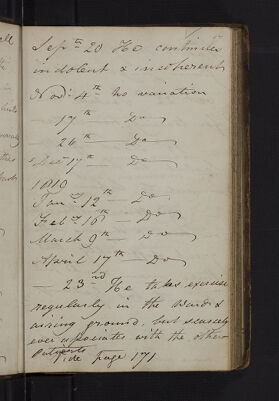 Sepr 20 He continues
indolent & incoherent
Novr 4th no variation
— 17th — Do
— 26th — Do
Decr 17th — Do
1810
Jany 12th — Do
Feby 16th — Do
March 9th — Do
April 17th — Do
— 23rd — He takes exercise
regularly in the Ward &
airing ground, but scarcely
ever associates with the other
Patients
Vide page 171